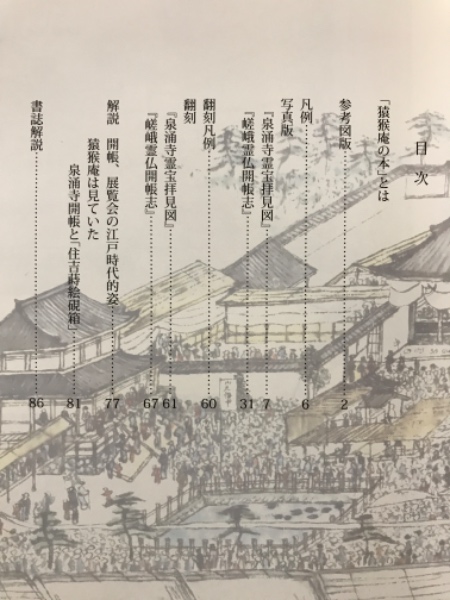 目次
「猿猴庵の本」とは
参考図版……2
凡例……6
写真版
『泉涌寺霊宝拝見図』……7
『嵯峨霊仏開帳志』……31
翻刻凡例……60
翻刻
『泉涌寺霊宝拝見図』……61
『嵯峨霊仏開帳志』……67
解説 開帳、展覧会の江戸時代的姿……77
猿猴庵は見ていた
泉涌寺開帳と「住吉蒔絵硯箱」……81
書誌解説……86